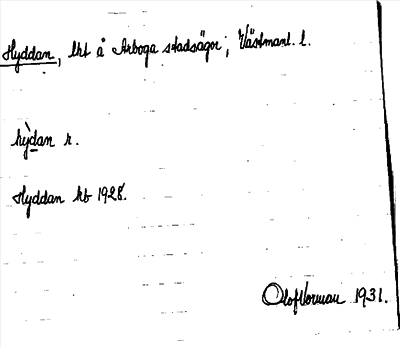 Hyddan, lht å Arboga stadsägor, Västmanl. l.
hỳdan r.
Hyddan kb 1928.
Olof Norman 1931.